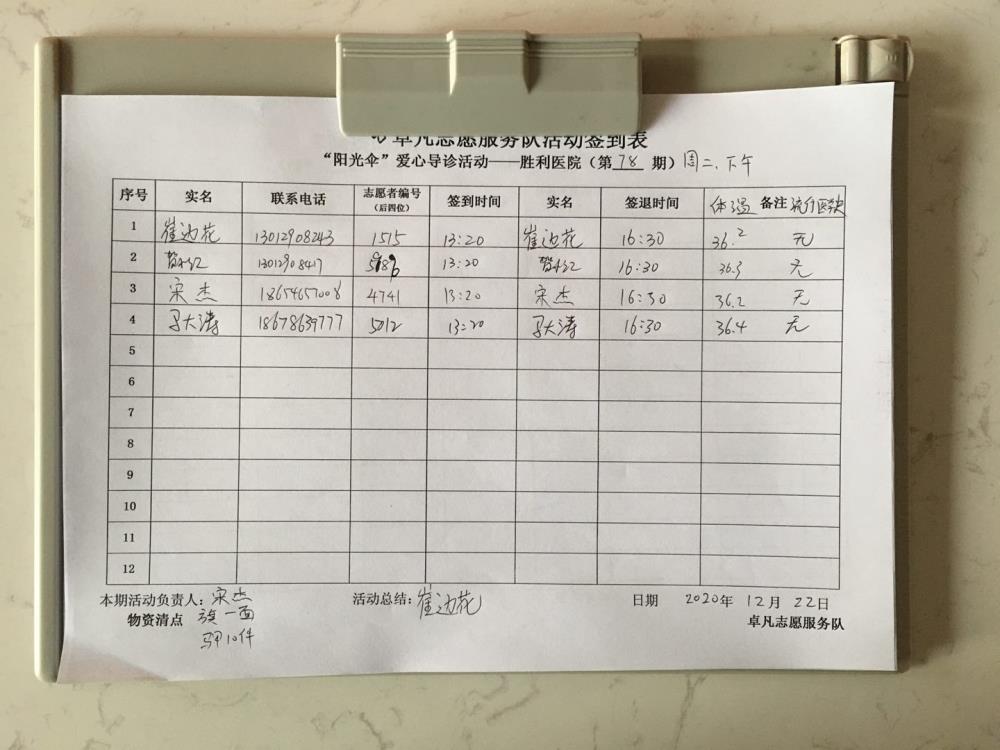 卓凡志愿服务队活动签到表
“阳光伞”爱心导诊活动——胜利医院（第 78 期）周二、下午
序号 实名 联系电话 志愿者编号（后四位） 签到时间 实名 签退时间 体温 备注
1 崔边花 13012908243 1515 13:20 崔边花 16:30 36.2 无
2 13012908417 13:20 16:30 36.3 无
3 宋杰 18654657008 4741 13:20 宋杰 16:30 36.2 无
4 马大涛 18678639777 5012 13:20 马大涛 16:30 36.4 无
5
6
7
8
9
10
11
12
本期活动负责人：宋杰 活动总结：崔边花 日期 2020年 12月 22日
物资清点 旗一面 卓凡志愿服务队
马甲10件